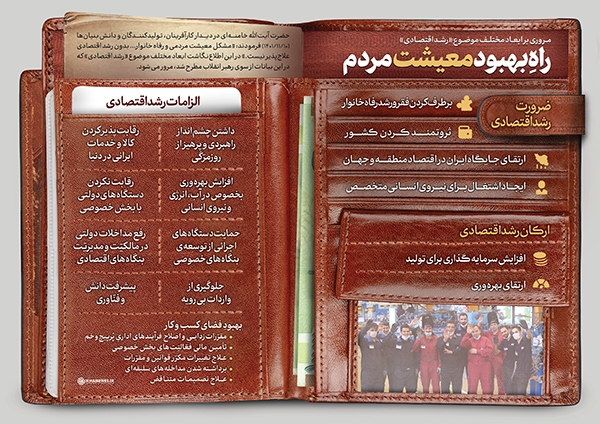 مروری بر ابعاد مختلف موضوع «رشد اقتصادی»
راهِ بهبود معیشت مردم
حضرت آیت‌الله خامنه‌ای در دیدار کارآفرینان، تولیدکنندگان و دانش‌بنیان‌ها
(۱۴۰۱/۱۱/۱۰) فرمودند: «مشکل معیشت مردمی و رفاه خانوار... بدون رشد اقتصادی
علاج‌پذیر نیست.» در این اطلاع‌نگاشت ابعاد مختلف موضوع «رشد اقتصادی» که
در این بیانات از سوی رهبر انقلاب مطرح شد، مرور می‌شود.
ضرورت
رشد اقتصادی
برطرف کردن فقر و رشد رفاه خانوار
ثروتمند کردن کشور
ارتقای جایگاه ایران در اقتصاد منطقه و جهان
ایجاد اشتغال برای نیروی انسانی متخصص
ارکان رشد اقتصادی
افزایش سرمایه گذاری برای تولید
ارتقای بهره‌وری
الزامات رشد اقتصادی
داشتن چشم‌انداز
راهبردی و پرهیز از
روزمرگی
رقابت پذیر کردن
کالا و خدمات
ایرانی در دنیا
افزایش بهره‌وری
بخصوص در آب، انرژی
و نیروی انسانی
رقابت نکردن
دستگاه‌های دولتی
با بخش خصوصی
حمایت دستگاه‌های
اجرائی از توسعه‌ی
بنگاه‌های خصوصی
رفع مداخلات دولتی
در مالکیّت و مدیریّت
بنگاه‌های اقتصادی
جلوگیری از
واردات بی‌رویه
پیشرفت دانش
و فنّاوری
بهبود فضای کسب و کار
• مقررات‌زدایی و اصلاح فرآیندهای اداری پُرپیچ‌وخم
• تأمین مالی فعالیت‌های بخش خصوصی
• علاج تغییرات مکرّر قوانین و مقررات
• برداشته شدن مداخله های سلیقه‌ای
• علاج تصمیمات متناقض
KHAMENEI.IR